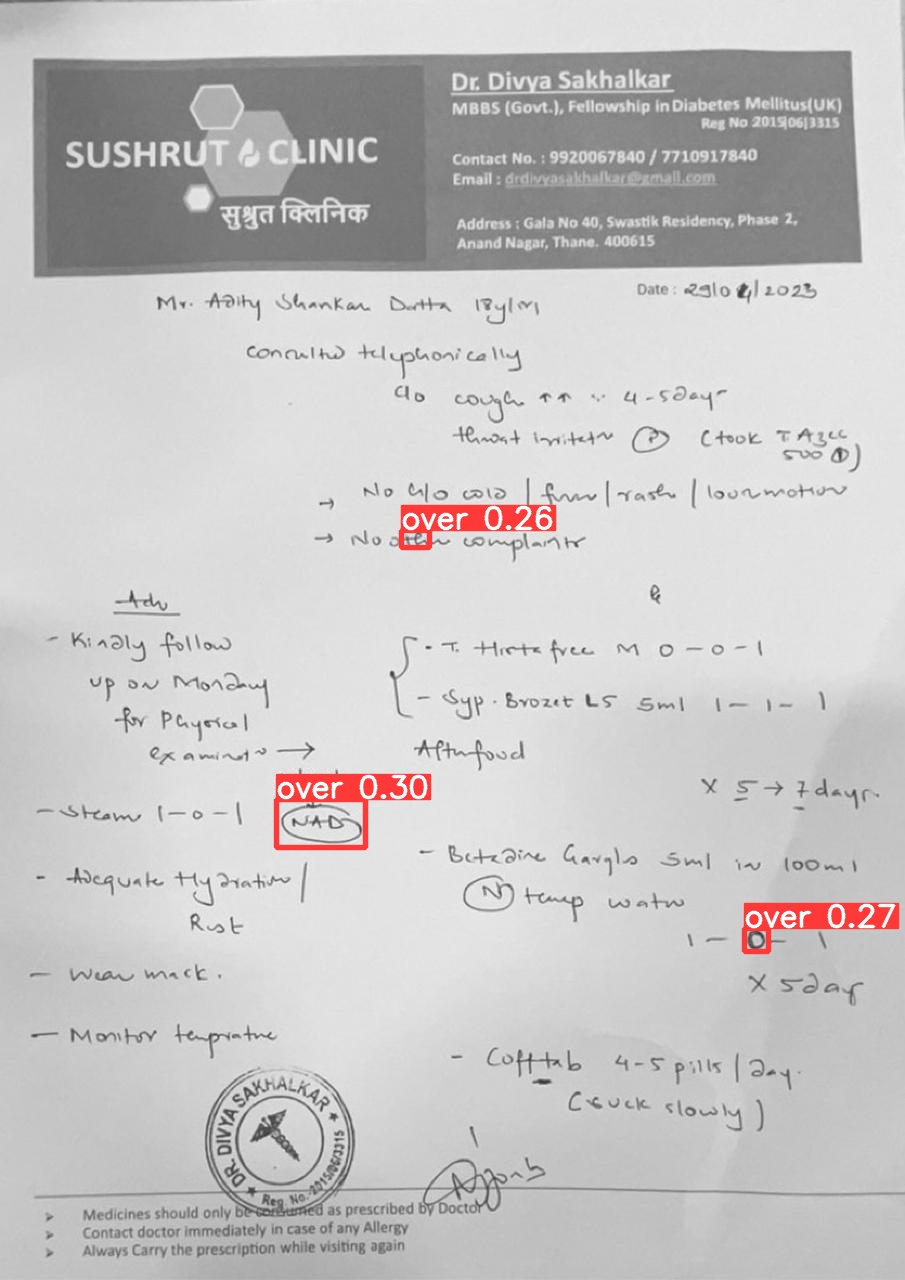 SUSHRUT CLINIC
सुश्रुत क्लिनिक
Dr. Divya Sakhalkar
MBBS (Govt.), Fellowship in Diabetes Mellitus(UK)
Reg No 2015|06|3315
Contact No. : 9920067840 / 7710917840
Email : drdivyasakhalkar@gmail.com
Address : Gala No 40, Swastik Residency, Phase 2,
Anand Nagar, Thane. 400615
Date : 29/04/2023
Mr. Adity Shankar Dutta 18y/M
Consulted telephonically
c/o cough ↑↑ 4-5 days
throat irritatn (took T Azee
500 ①)
→ No c/o cold / fever / rash / loosemotion
over 0.26
→ No other complaints
Adv
- Kindly follow
up on Monday
for Physical
examinatn →
- Steam 1-0-1
over 0.30
NAD
- Adequate Hydration /
Rest
- Wear mask.
- Monitor temprature
&
- T. Histafree M 0-0-1
- Syp. Brozet LS 5ml 1-1-1
After food
x 5 → 7 days.
- Betadine Gargls 5ml in 100ml
(N) temp water
over 0.27
1-0-1
x 5 day
- Cofftab 4-5 pills / day.
(suck slowly)
DR. DIVYA SAKHALKAR
Reg. No.-2015/06/3315
Medicines should only be consumed as prescribed by Doctor
Contact doctor immediately in case of any Allergy
Always Carry the prescription while visiting again